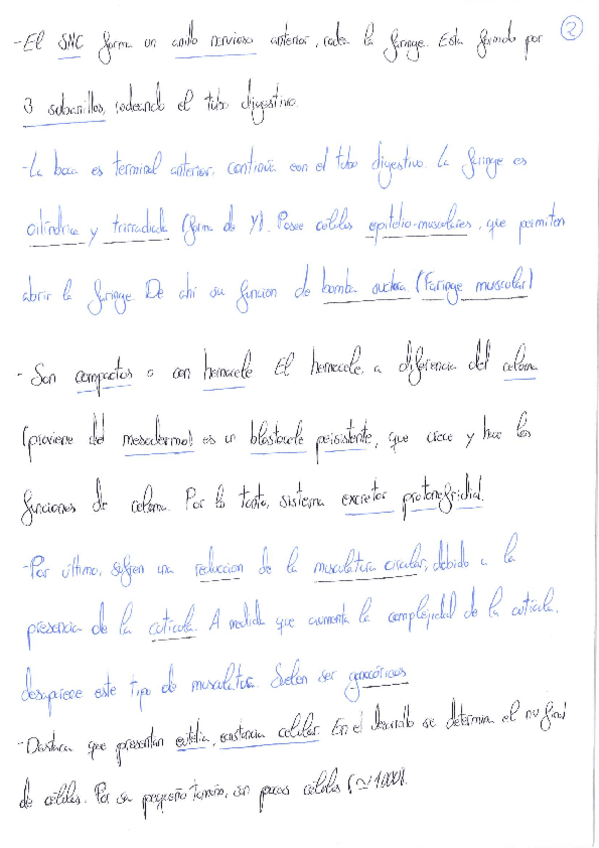 -El SNC forma un anillo nervioso anterior, rodea la faringe. Esta formado por ②
3 subanillos, rodeando el tubo digestivo.
-La boca es terminal anterior, continúa con el tubo digestivo. La faringe es
cilíndrica y trirradiada (forma de Y). Posee células epitelio-musculares, que permiten
abrir la faringe. De ahi su funcion de bomba suctora (Faringe muscular)
- Son compactos o con hemocele. El hemocele, a diferencia del celoma
(proviene del mesodermo) es un blastocele persistente, que crece y hace las
funciones de celoma. Por lo tanto, sistema excretor protonefridial.
-Por último, sufren una reduccion de la musculatura circular, debido a la
presencia de la cuticula. A medida que aumenta la complejidad de la cuticula,
desaparece este tipo de musculatura. Suelen ser gonocóricos
-Destaca que presentan eutelia, constancia celular. En el desarrollo se determina el nº final
de células. Por su pequeño tamaño, son pocas células (≃1000).